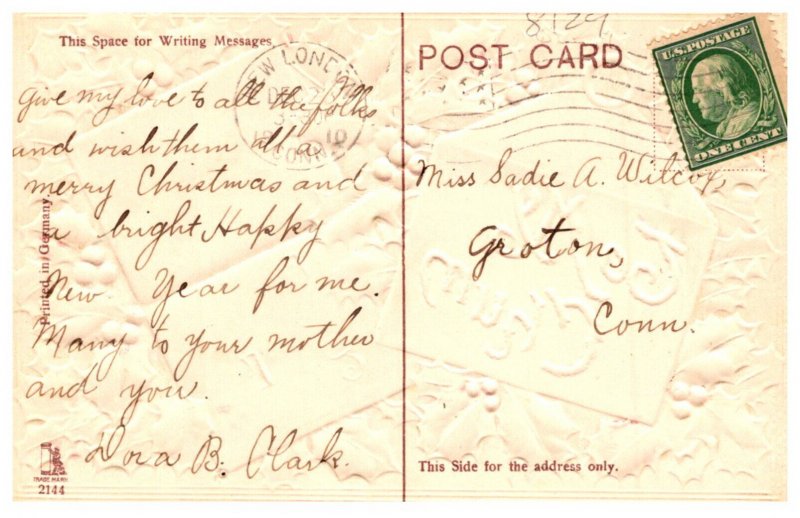 8129
This Space for Writing Messages
POST CARD
U.S. POSTAGE
ONE CENT
NEW LONDON
DEC
3-
10
CONN
Give my love to all the folks
and wish them all a
merry Christmas and
a bright Happy
New Year for me.
Many to your mother
and you.
Dora B. Clark.
Miss Sadie A. Wilcox,
Groton,
Conn.
Printed in Germany.
TRADE MARK
2144
This Side for the address only.